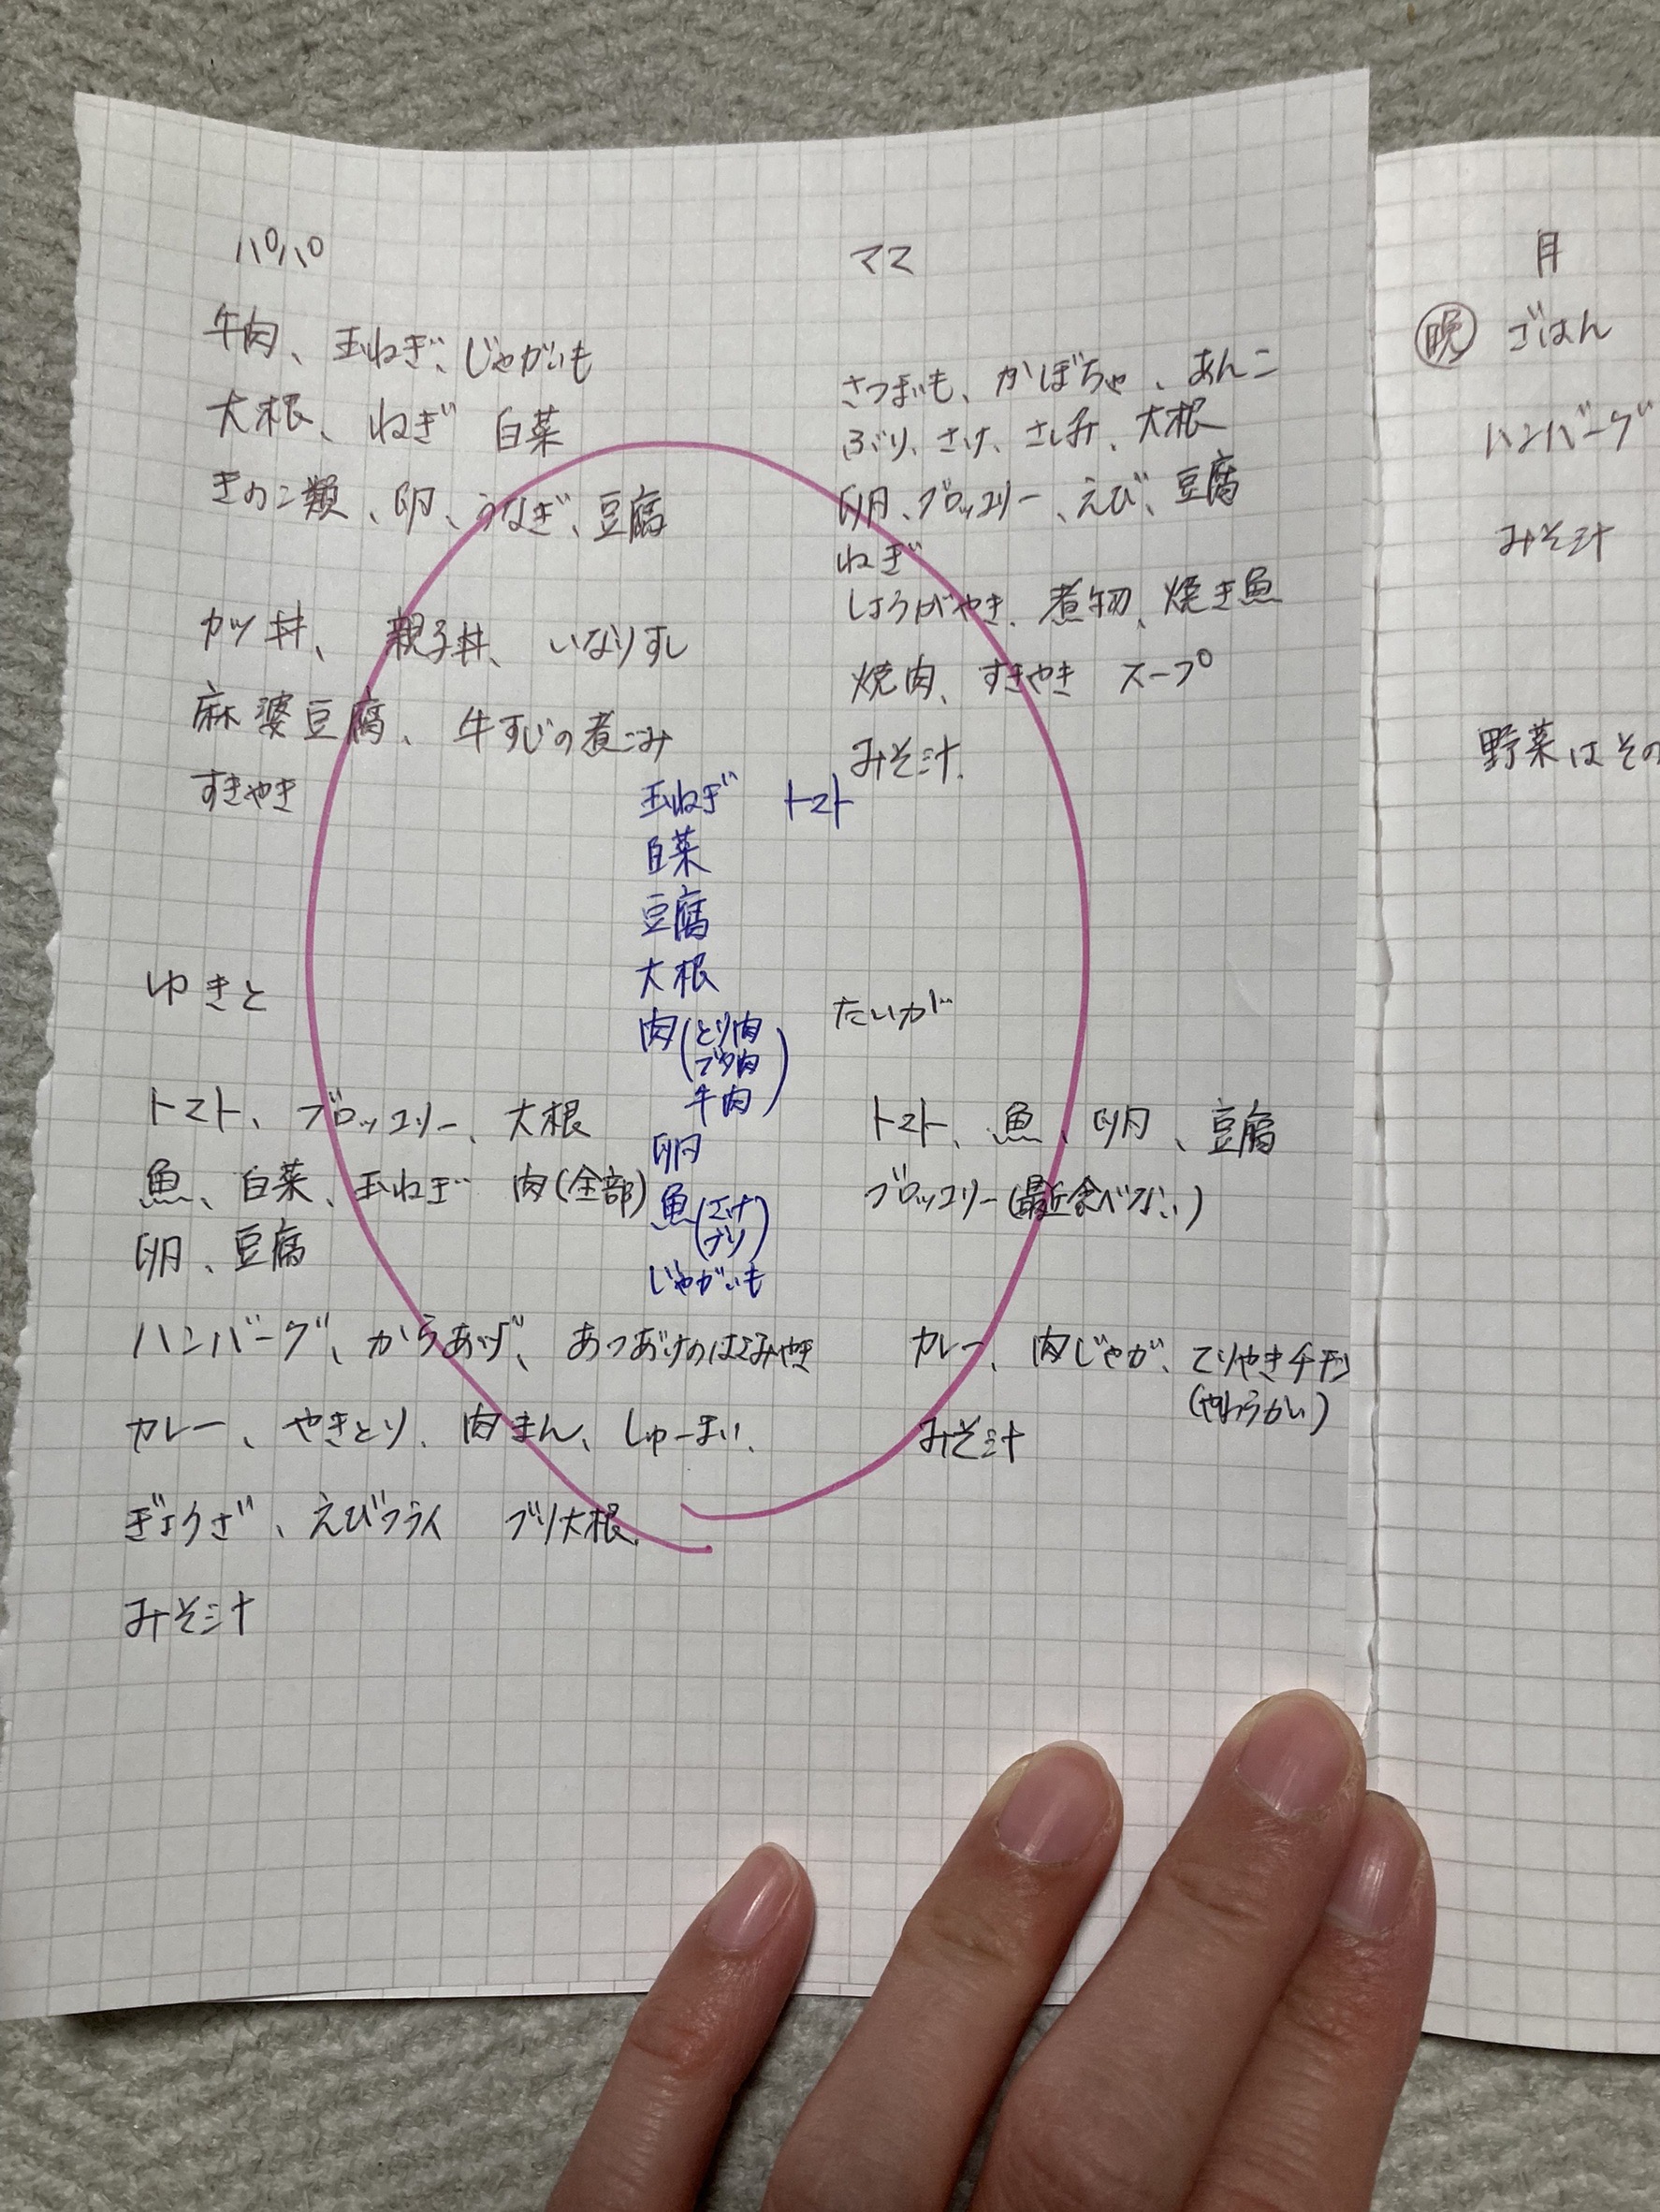 パパ
牛肉、玉ねぎ、じゃがいも
大根、ねぎ 白菜
きのこ類、卵、うなぎ、豆腐
カツ丼、親子丼、いなりずし
麻婆豆腐、牛すじの煮こみ
すきやき
ママ
さつまいも、かぼちゃ、あんこ
ぶり、さけ、さしみ、大根
卵、ブロッコリー、えび、豆腐
ねぎ
しょうがやき、煮物、焼き魚
焼肉、すきやき スープ
みそ汁.
玉ねぎ トマト
白菜
豆腐
大根
肉(とり肉
ブタ肉
牛肉)
卵
魚(さけ
ブリ)
じゃがいも
ゆきと
トマト、ブロッコリー、大根
魚、白菜、玉ねぎ 肉(全部)
卵、豆腐
ハンバーグ、からあげ、あつあげのはさみやき
カレー、やきとり、肉まん、しゅーまい、
ぎょうざ、えびフライ ブリ大根.
みそ汁
たいが
トマト、魚、卵、豆腐
ブロッコリー(最近食べない)
カレー、肉じゃが、てりやきチキン
(やわらかい)
みそ汁
月
晩 ごはん
ハンバーグ
みそ汁
野菜はその